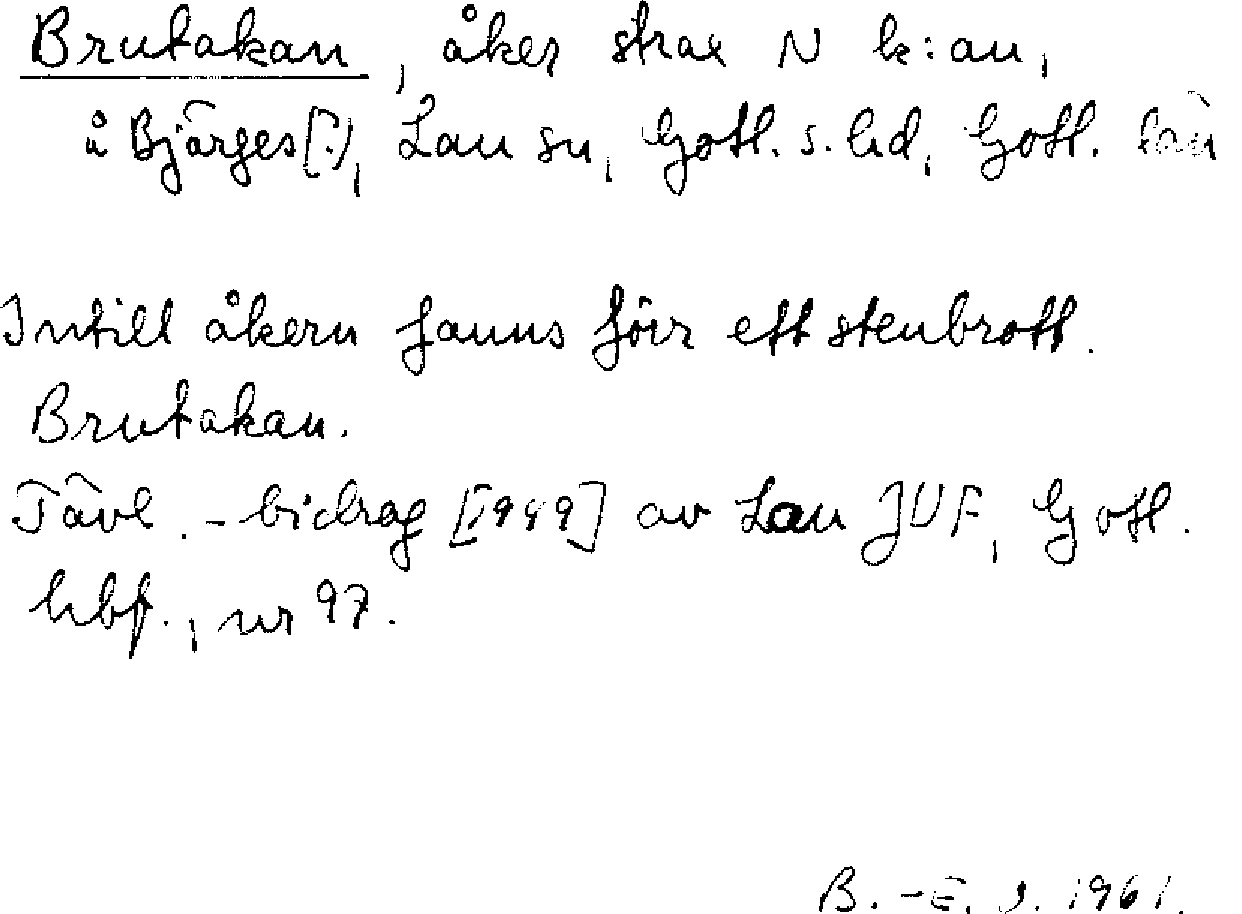 Brutakan, åker strax N k:an,
å Bjärges[:], Lau sn, Gotl. s. hd, Gotl. län
Intill åkern fanns förr ett stenbrott.
Brutakan.
Tävl.-bidrag [1949] av Lau JUF, Gotl.
hbf., nr 97.
B.-E. J. 1961.